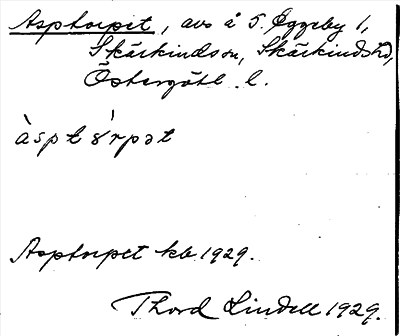 Asptorpet, avs å S. Öggeby 1,
Skärkind sn, Skärkinds hd,
Östergötl. l.
àsptórpət
Asptorpet kb 1929.
Thord Lindell 1929.